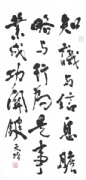 知識与信息膽
略与行為是事
業成功關鍵